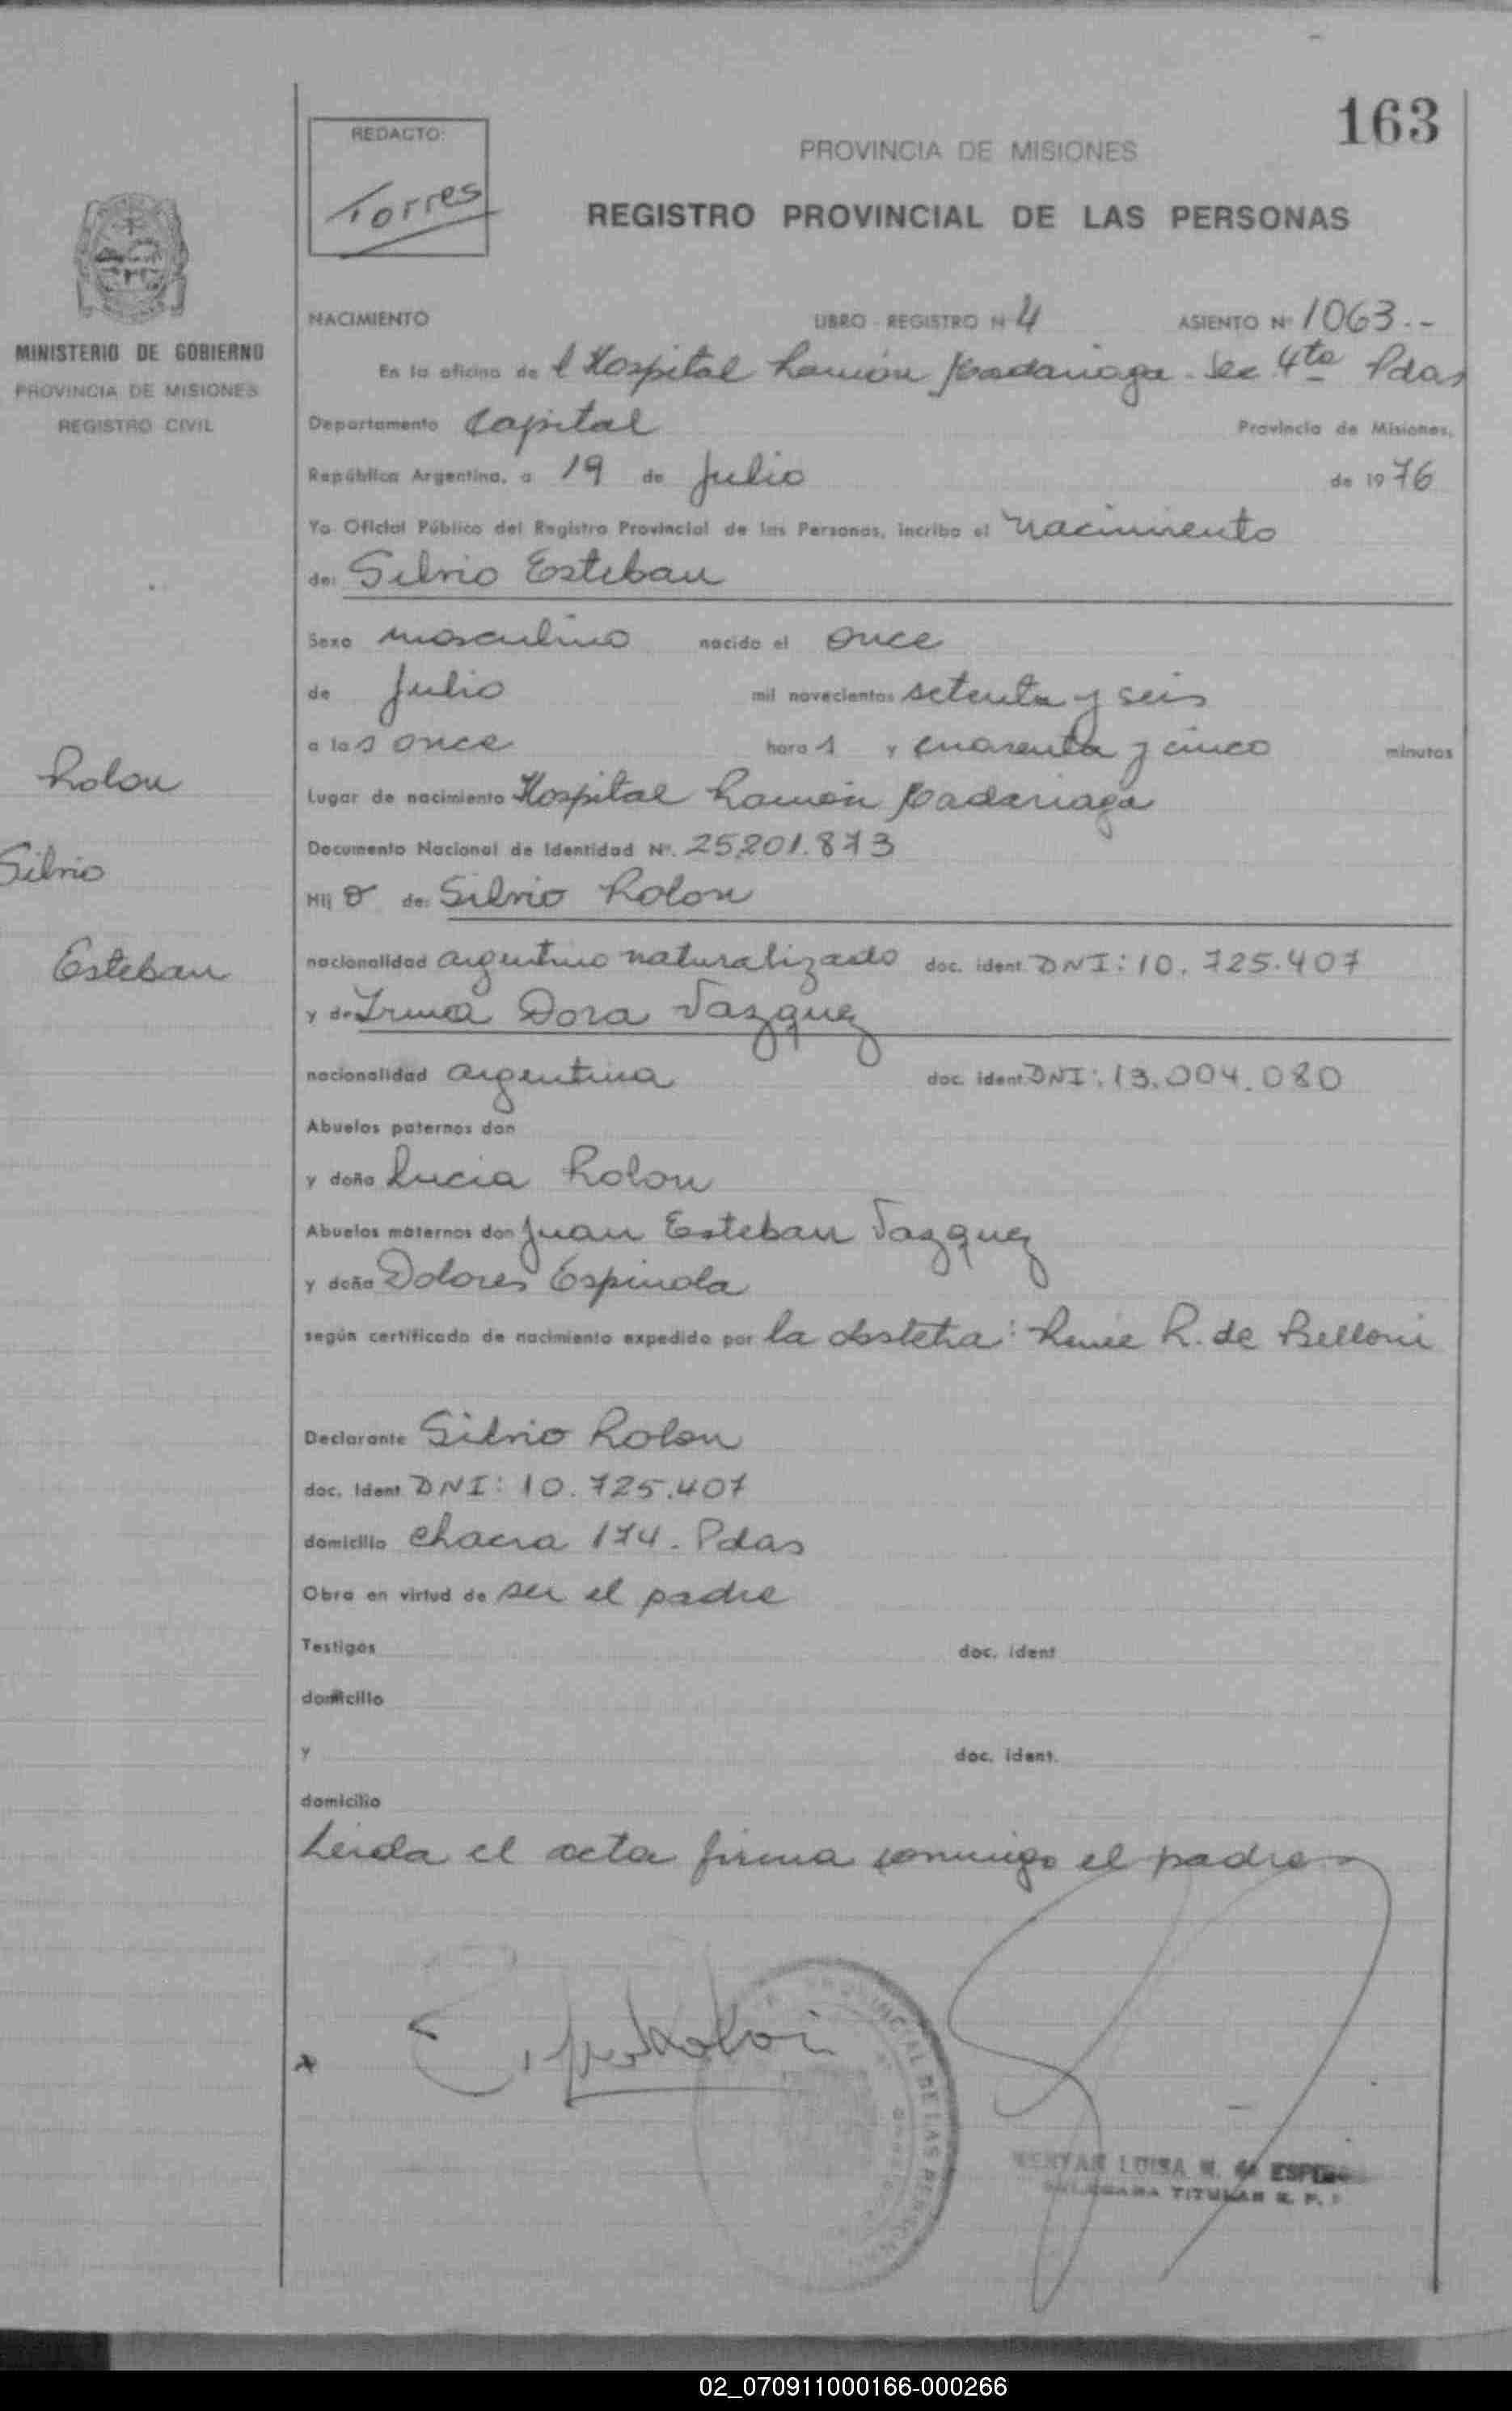 163
REDACTO:
Torres
PROVINCIA DE MISIONES
REGISTRO PROVINCIAL DE LAS PERSONAS
MINISTERIO DE GOBIERNO
PROVINCIA DE MISIONES
REGISTRO CIVIL
NACIMIENTO LIBRO - REGISTRO N 4 ASIENTO Nº 1063.-
En la oficina de l Hospital Ramón Madariaga - Sec 4ta Pdas
Departamento Capital Provincia de Misiones,
República Argentina, a 19 de Julio de 1976
Yo Oficial Público del Registro Provincial de las Personas, incribo el nacimiento
de: Silvio Esteban
Sexo masculino nacido el once
de Julio mil novecientos setenta y seis
a las once hora s y cuarenta y cinco minutos
Rolon
Lugar de nacimiento Hospital Ramón Madariaga
Documento Nacional de Identidad Nº. 25.201.873
Silvio
Hij o de: Silvio Rolon
Esteban
nacionalidad argentino naturalizado doc. ident. DNI: 10.725.407
y de Irma Dora Vazquez
nacionalidad argentina doc. ident DNI: 13.004.080
Abuelos paternos don
y doña Lucia Rolon
Abuelos maternos don Juan Esteban Vazquez
y doña Dolores Espinola
según certificado de nacimiento expedido por la obstetra: Renée R. de Belloni
Declarante Silvio Rolon
doc. Ident DNI: 10.725.407
domicilio chacra 174. Pdas
Obra en virtud de ser el padre
Testigos doc. ident
domicilio
y doc. ident.
domicilio
Leida el acta firma conmigo el padre
PROVINCIAL DE LAS PERSONAS
LUISA
TITULAR
02_070911000166-000266